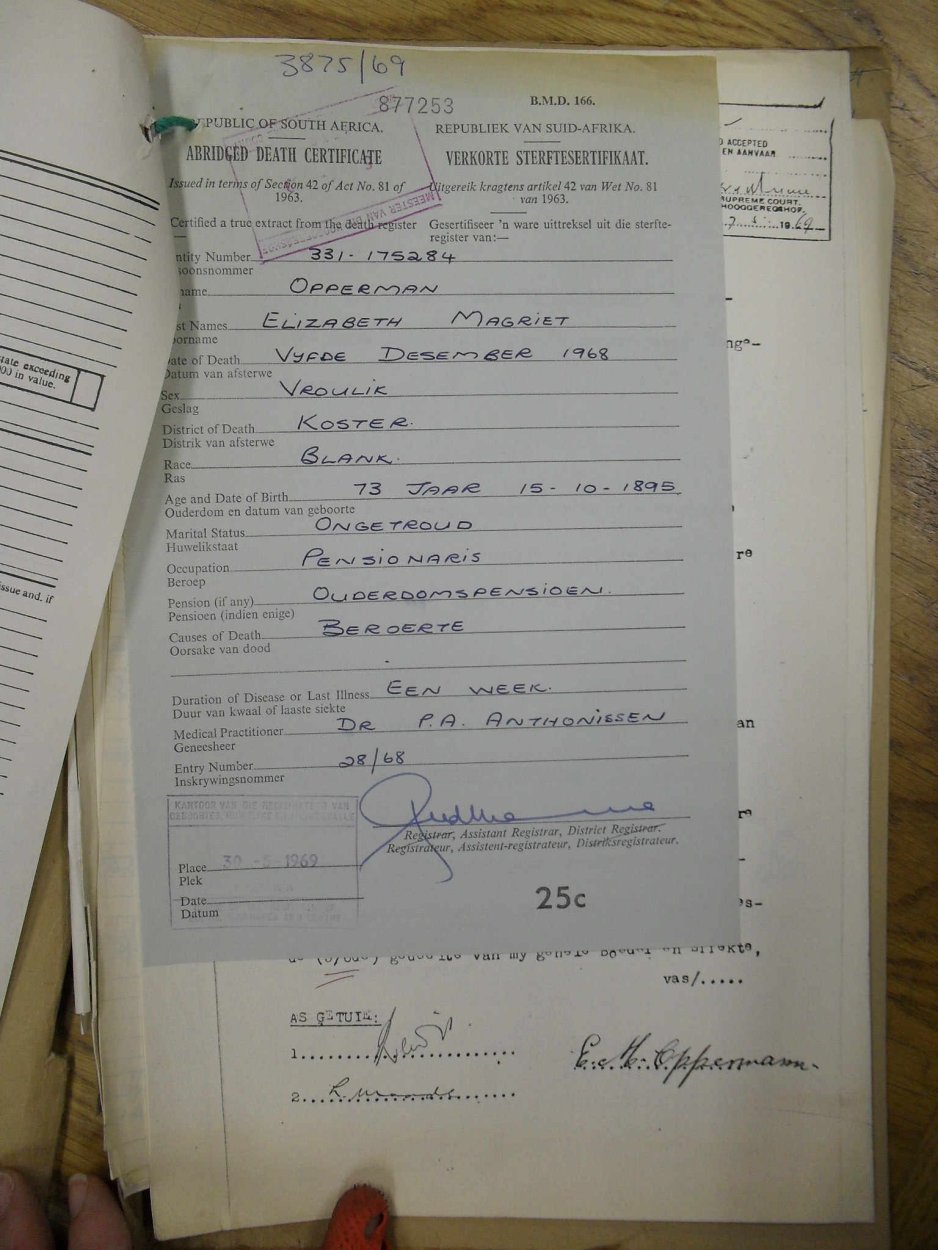 3875/69
877253
B.M.D. 166.
REPUBLIC OF SOUTH AFRICA.
REPUBLIEK VAN SUID-AFRIKA.
ABRIDGED DEATH CERTIFICATE
VERKORTE STERFTESERTIFIKAAT.
Issued in terms of Section 42 of Act No. 81 of 1963.
Uitgereik kragtens artikel 42 van Wet No. 81 van 1963.
MEESTER VAN DIE
Certified a true extract from the death register
Gesertifiseer 'n ware uittreksel uit die sterfte-
register van:—
ntity Number 331-175284
soonsnommer
name OPPERMAN
st Names ELIZABETH MAGRIET
orname
ate of Death VYFDE DESEMBER 1968
Datum van afsterwe
Sex VROULIK
Geslag
District of Death KOSTER.
Distrik van afsterwe
Race BLANK.
Ras
Age and Date of Birth 73 JAAR 15-10-1895
Ouderdom en datum van geboorte
Marital Status ONGETROUD
Huwelikstaat
Occupation PENSIONARIS
Beroep
Pension (if any) OUDERDOMSPENSIOEN.
Pensioen (indien enige)
Causes of Death BEROERTE
Oorsake van dood
Duration of Disease or Last Illness EEN WEEK.
Duur van kwaal of laaste siekte
Medical Practitioner DR P.A. ANTHONISSEN
Geneesheer
Entry Number 28/68
Inskrywingsnommer
KANTOOR VAN DIE REGISTRATEUR VAN
Registrar, Assistant Registrar, District Registrar.
Registrateur, Assistent-registrateur, Distriksregistrateur.
Place 30 -5-1969
Plek
Date
Datum
25c
D ACCEPTED
EN AANVAAR
SUPREME COURT.
HOOGGEREGSHOF.
1969
nge-
re
an
ra
es-
gedeelte van my gehele boedel en effekte,
vas/.....
AS GETUIE:
1.
2.
E. M. Oppermann.
tate exceeding
00 in value.
issue and, if